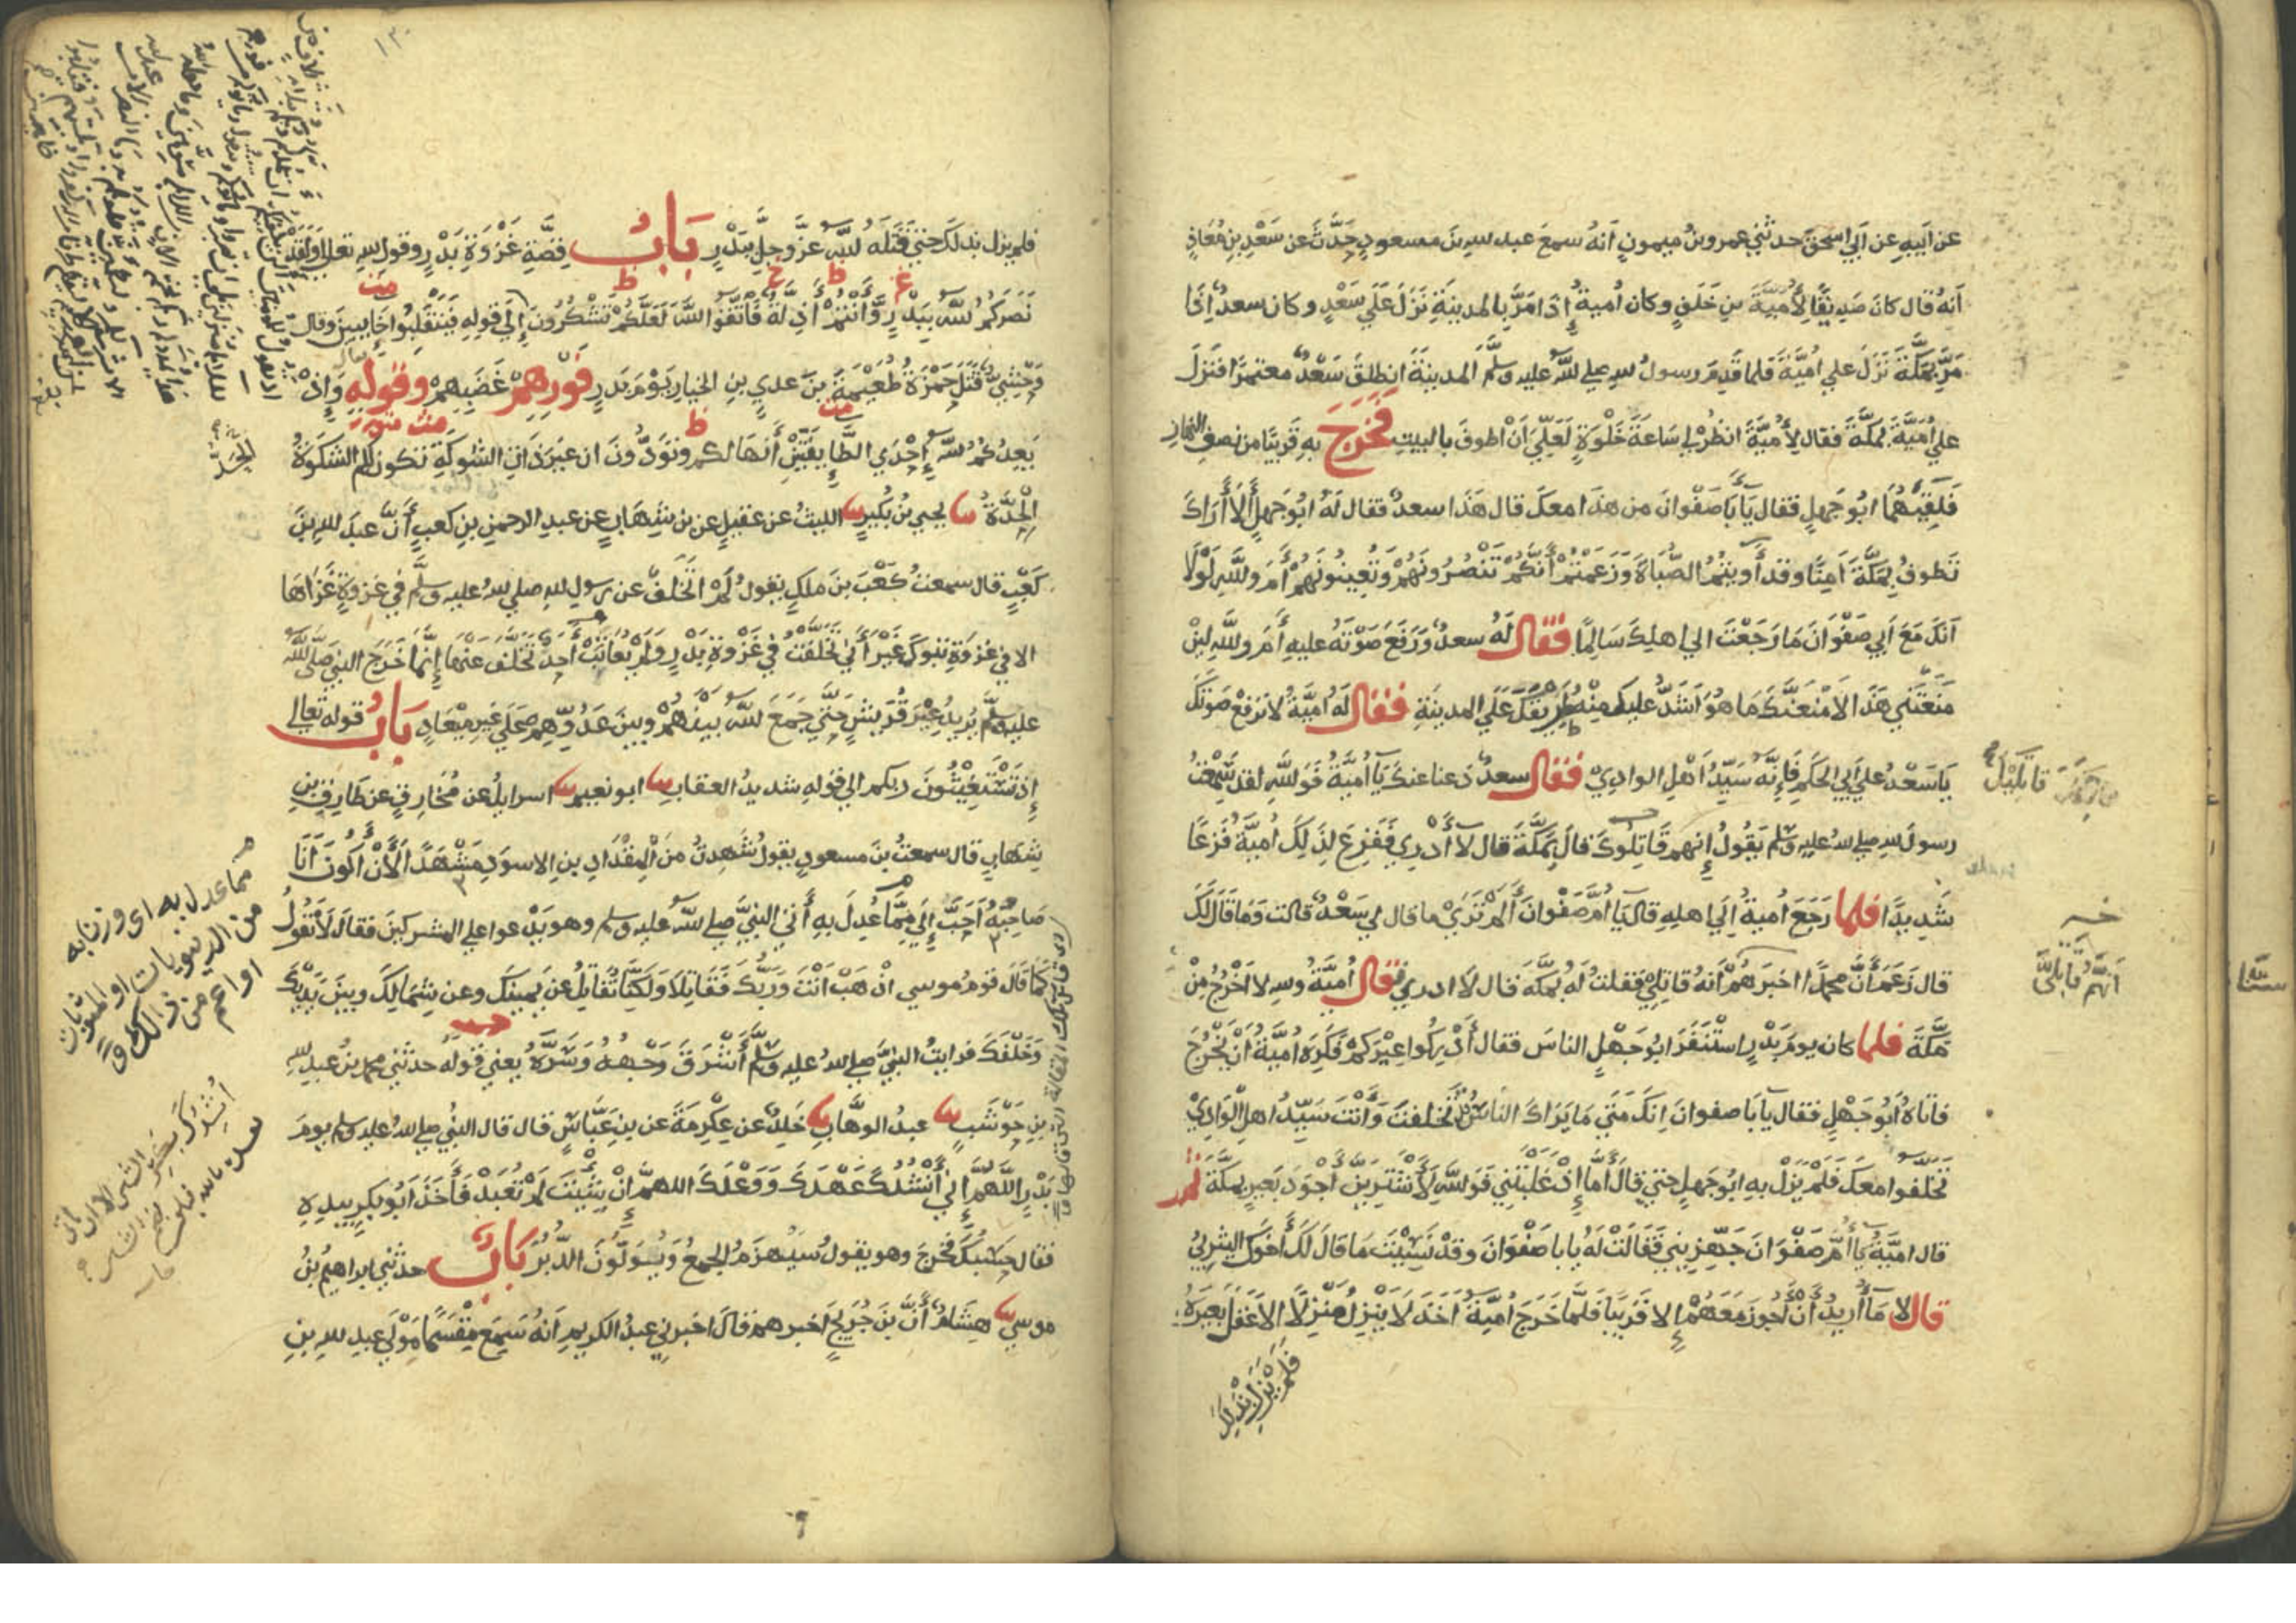 عن ابيه عن ابي اسحق حدثني عمرو بن ميمون انه سمع عبد الله بن مسعود حدث عن سعد بن معاذ
انه قال كان صديقا لأمية بن خلف وكان أمية إذا مر بالمدينة نزل على سعد وكان سعد إذا
مر بمكة نزل علي امية فلما قدم رسول الله صلي الله عليه وسلم المدينة انطلق سعد معتمرا فنزل
علي امية بمكة فقال لأمية انظر لي ساعة خلوة لعلي أن اطوف بالبيت فخرج به قريبا من نصف النهار
فلقيهما ابو جهل فقال يا أبا صفوان من هذا معك قال هذا سعد فقال له ابو جهل ألا أراك
تطوف بمكة آمنا وقد أويتم الصباة وزعمتم أنكم تنصرونهم وتعينونهم أما والله لولا
انك مع أبي صفوان ما رجعت الي اهلك سالما فقال له سعد ورفع صوته عليه أما والله لئن
منعتني هذا لأمنعنك ما هو أشد عليك منه طريقك على المدينة فقال له أمية لا ترفع صوتك
يا سعد علي أبي الحكم فإنه سيد أهل الوادي فقال سعد دعنا عنك يا أمية فوالله لقد سمعت
رسول الله صلي الله عليه وسلم يقول إنهم قاتلوك قال بمكة قال لا أدري ففزع لذلك أمية فزعا
شديدا فلما رجع أمية إلى اهله قال يا أم صفوان ألم تري ما قال لي سعد قالت وما قال لك
قال زعم أن محمدا اخبرهم أنه قاتلي فقلت له بمكة قال لا ادري فقال أمية والله لا اخرج من
مكة فلما كان يوم بدر استنفر ابو جهل الناس فقال أدركوا عيركم فكره أمية أن يخرج
فاتاه أبو جهل فقال يا أبا صفوان انك متي ما يراك الناس قد تخلفت وأنت سيد اهل الوادي
تخلفوا معك فلم يزل به ابو جهل حتي قال أما إذ غلبتني فوالله لأشترين أجود بعير بمكة ثم
قال امية يا أم صفوان جهزيني فقالت له يا با صفوان وقد نسيت ما قال لك أخوك اليثربي
قال لا ما أريد أن أجوز معهم إلا قريبا فلما خرج أمية أخذ لا ينزل منزلا الا عقل بعيره
فلم يزل بذلك
أنهم قاتليّ
فلم يزل بذلك حتي قتله الله عز وجل ببدر باب قصة غزوة بدر وقول الله تعالي ولقد
نصركم الله ببدر وأنتم أذلة فاتقوا الله لعلكم تشكرون إلى قوله فينقلبوا خايبين وقال
وحشي قتل حمزة طعيمة بن عدي بن الخيار يوم بدر فورهم غضبهم وقوله وإذ
يعدكم الله إحدي الطايفتين أنها لكم وتودون ان غير ذات الشوكة تكون لكم الشوكة
الحدة يحيي بن بكير الليث عن عقيل عن بن شهاب عن عبد الرحمن بن كعب أن عبد الله بن
كعب قال سمعت كعب بن ملك يقول لم اتخلف عن رسول الله صلي الله عليه وسلم في غزوة غزاها
الا في غزوة تبوك غير أني تخلفت في غزوة بدر ولم يعاتب أحد تخلف عنها إنما خرج النبي صلى الله
عليه وسلم يريد عير قريش حتي جمع الله بينهم وبين عدوهم على غير ميعاد باب قوله تعالي
إذ تستغيثون ربكم الي قوله شديد العقاب ابو نعيم اسرايل عن مخارق عن طارق بن
شهاب قال سمعت بن مسعود يقول شهدت من المقداد بن الاسود مشهدا لأن أكون أنا
صاحبه أحب إلي مما عدل به أتى النبي صلي الله عليه وسلم وهو يدعوا علي المشركين فقال لا نقول
كما قال قوم موسي اذهب أنت وربك فقاتلا ولكنا نقاتل عن يمينك وعن شمالك وبين يديك
وخلفك فرايت النبي صلي الله عليه وسلم أشرق وجهه وسره يعني قوله حدثني محمد بن عبد الله
بن حوشب عبد الوهاب خلد عن عكرمة عن بن عباس قال قال النبي صلي الله عليه وسلم يوم
بدر اللهم إني أنشدك عهدك ووعدك اللهم إن شئت لم تعبد فأخذ ابو بكر بيده
فقال حسبك فخرج وهو يقول سيهزم الجمع ويولون الدبر باب حدثني ابراهيم بن
موسي هشام أن بن جريج اخبرهم قال اخبرني عبد الكريم أنه سمع مقسما مولي عبد الله بن
مما عدل به اى وزن به
من الدنيويات او المثوبات
او اعم من ذالك